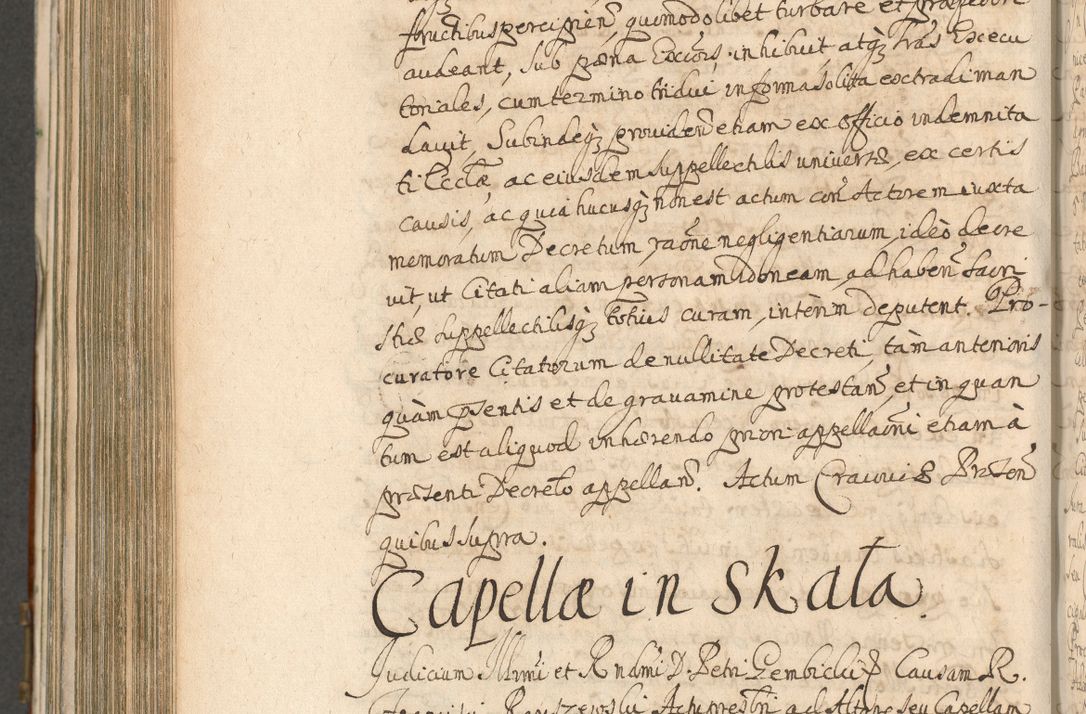 fructibus percipien̄, quomodolibet turbare et præpedire
audeant, sub pæna Excōis, inhibuit atq3 Lr̄as Execu
toriales, cum termino tridui in forma solita extradi man
davit, Subindeq3 providen̄ etiam ex officio indemnita
ti Eccl̄æ, ac eiusdem suppellectilis universæ, ex certis
causis, ac quia hucusq3 non est actum con̄ Actorem iuxta
memoratum Decretum, raōne negligentiarum, ideò decre
vit, ut Citati aliam personam idoneam, ad haben̄ Sacri
stiæ suppellectilisq3 totius curam, interim deputent. Pro-
curatore Citatorum de nullitate Decreti, tàm anterioris
quàm pr̄sentis et de gravamine protestan̄, et in quan
tum est aliquod inhærendo priori appellaōni etiam à
præsenti Decreto appellan̄. Actum Cracoviæ Præsen̄
quibus supra.
Capellæ in Skała.
Judicium Illr̄mi et R̄ndmi D. Petri Gembicki Causam R.
ad Altare seu Capellam